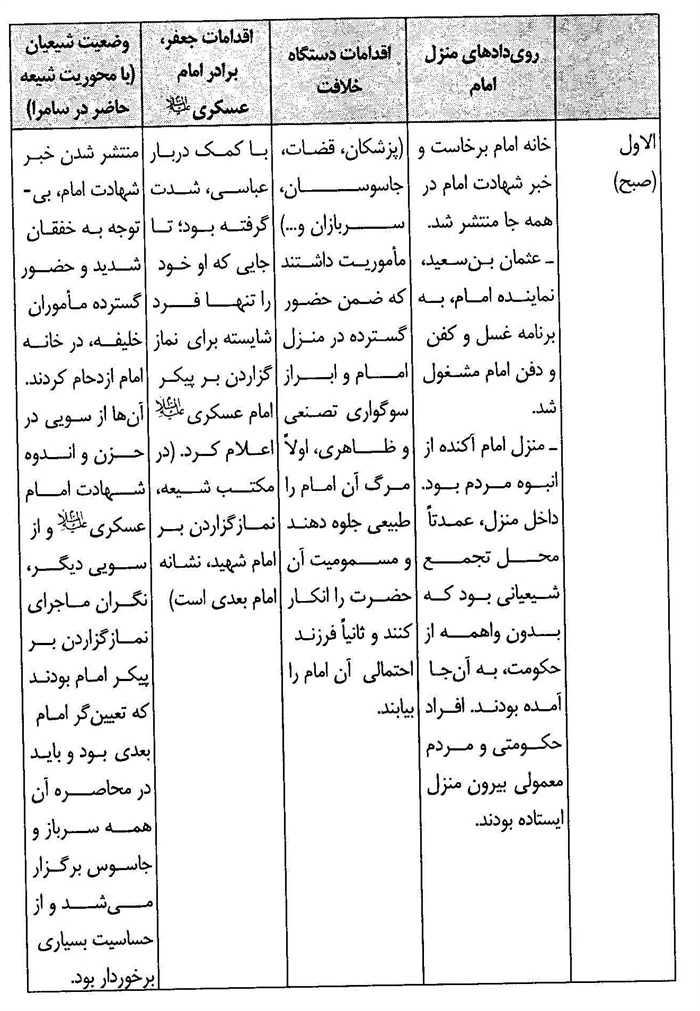 روی‌دادهای منزل
امام
اقدامات دستگاه
خلافت
اقدامات جعفر،
برادر امام
عسکری علیه‌السلام
وضعیت شیعیان
(با محوریت شیعه
حاضر در سامرا)
الاول
(صبح)
خانه امام برخاست و
خبر شهادت امام در
همه جا منتشر شد.
ـ عثمان بن‌سعید،
نماینده امام، به
برنامه غسل و کفن
و دفن امام مشغول
شد.
ـ منزل امام آکنده از
انبوه مردم بود.
داخل منزل، عمدتاً
محل تجمع
شیعیانی بود که
بدون واهمه از
حکومت، به آن‌جا
آمده بودند. افراد
حکومتی و مردم
معمولی بیرون منزل
ایستاده بودند.
(پزشکان، قضات،
جاسوسان،
سربازان و...)
مأموریت داشتند
که ضمن حضور
گسترده در منزل
امام و ابراز
سوگواری تصنعی
و ظاهری، اولاً
مرگ آن امام را
طبیعی جلوه دهند
و مسمومیت آن
حضرت را انکار
کنند و ثانیاً فرزند
احتمالی آن امام را
بیابند.
با کمک دربار
عباسی، شدت
گرفته بود؛ تا
جایی که او خود
را تنها فرد
شایسته برای نماز
گزاردن بر پیکر
امام عسکری علیه‌السلام
اعلام کرد. (در
مکتب شیعه،
نمازگزاردن بر
امام شهید، نشانه
امام بعدی است)
منتشر شدن خبر
شهادت امام، بی-
توجه به خفقان
شدید و حضور
گسترده مأموران
خلیفه، در خانه
امام ازدحام کردند.
آن‌ها از سویی در
حزن و اندوه
شهادت امام
عسکری علیه‌السلام و از
سویی دیگر،
نگران ماجرای
نمازگزاردن بر
پیکر امام بودند
که تعیین‌گر امام
بعدی بود و باید
در محاصره آن
همه سرباز و
جاسوس برگزار
می‌شد و از
حساسیت بسیاری
برخوردار بود.